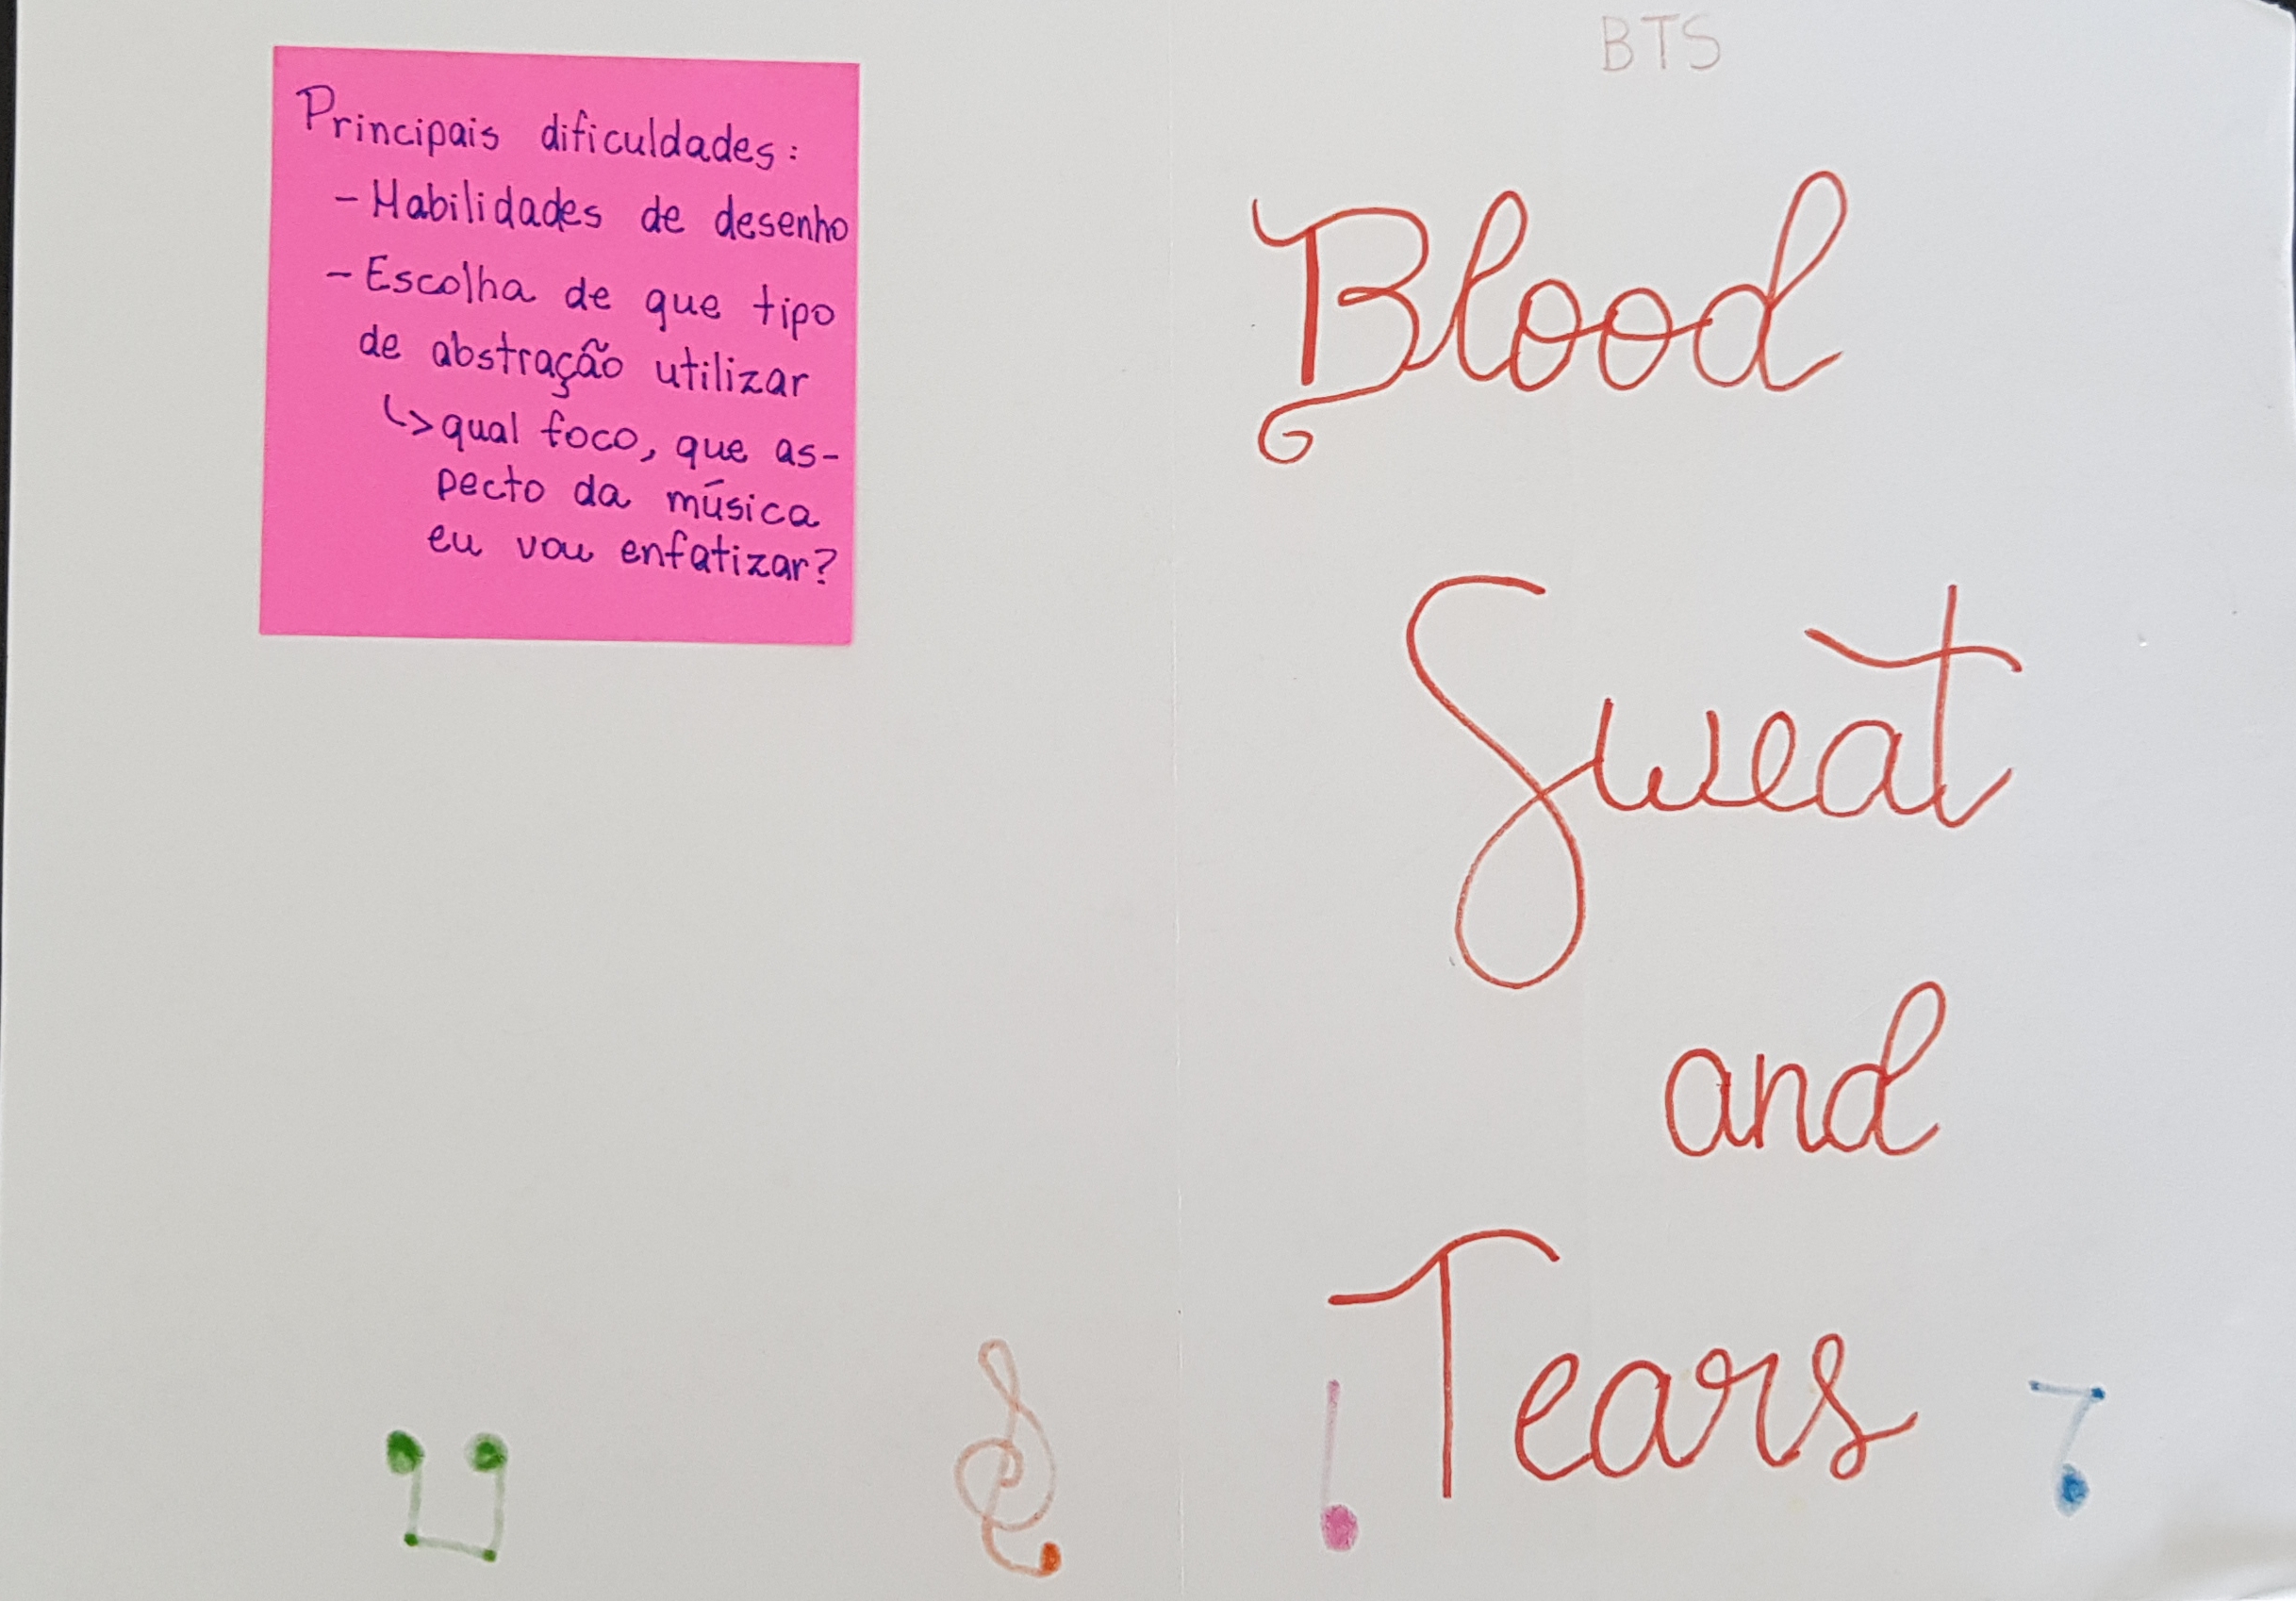 Principais dificuldades:
- Habilidades de desenho
- Escolha de que tipo
de abstração utilizar
↳ qual foco, que as-
pecto da música
eu vou enfatizar?
BTS
Blood
Sweat
and
Tears